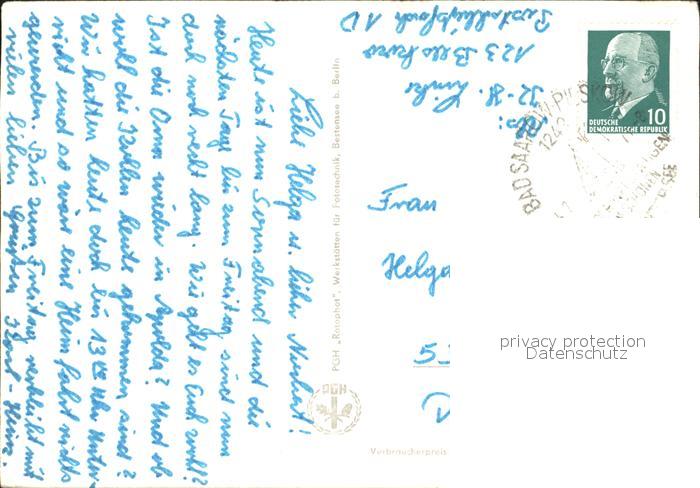 Liebe Helga u. lieber Norbert!
Heute ist nun Sonnabend und die
nächsten Tage bis zum Freitag sind nun
doch noch recht lang. Wie geht es Euch wohl?
Ist die Oma wieder in Apolda? Und ob
wohl die Kohlen heute gekommen sind?
Wir hatten heute doch bis 13 Uhr Unter-
richt und so wär eine Heimfahrt nichts
geworden. Bis zum Freitag verbleibt mit
vielen lieben Grüßen Horst-Heinz.
PGH „Rotophot", Werkstätten für Fototechnik, Bestensee b. Berlin
PGH
Abs:
123 Beeskow
DEUTSCHE
DEMOKRATISCHE REPUBLIK
10
BAD SAAROW-PIESKOW
1242
Frau
Helga
53
D
Verbraucherpreis
privacy protection
Datenschutz